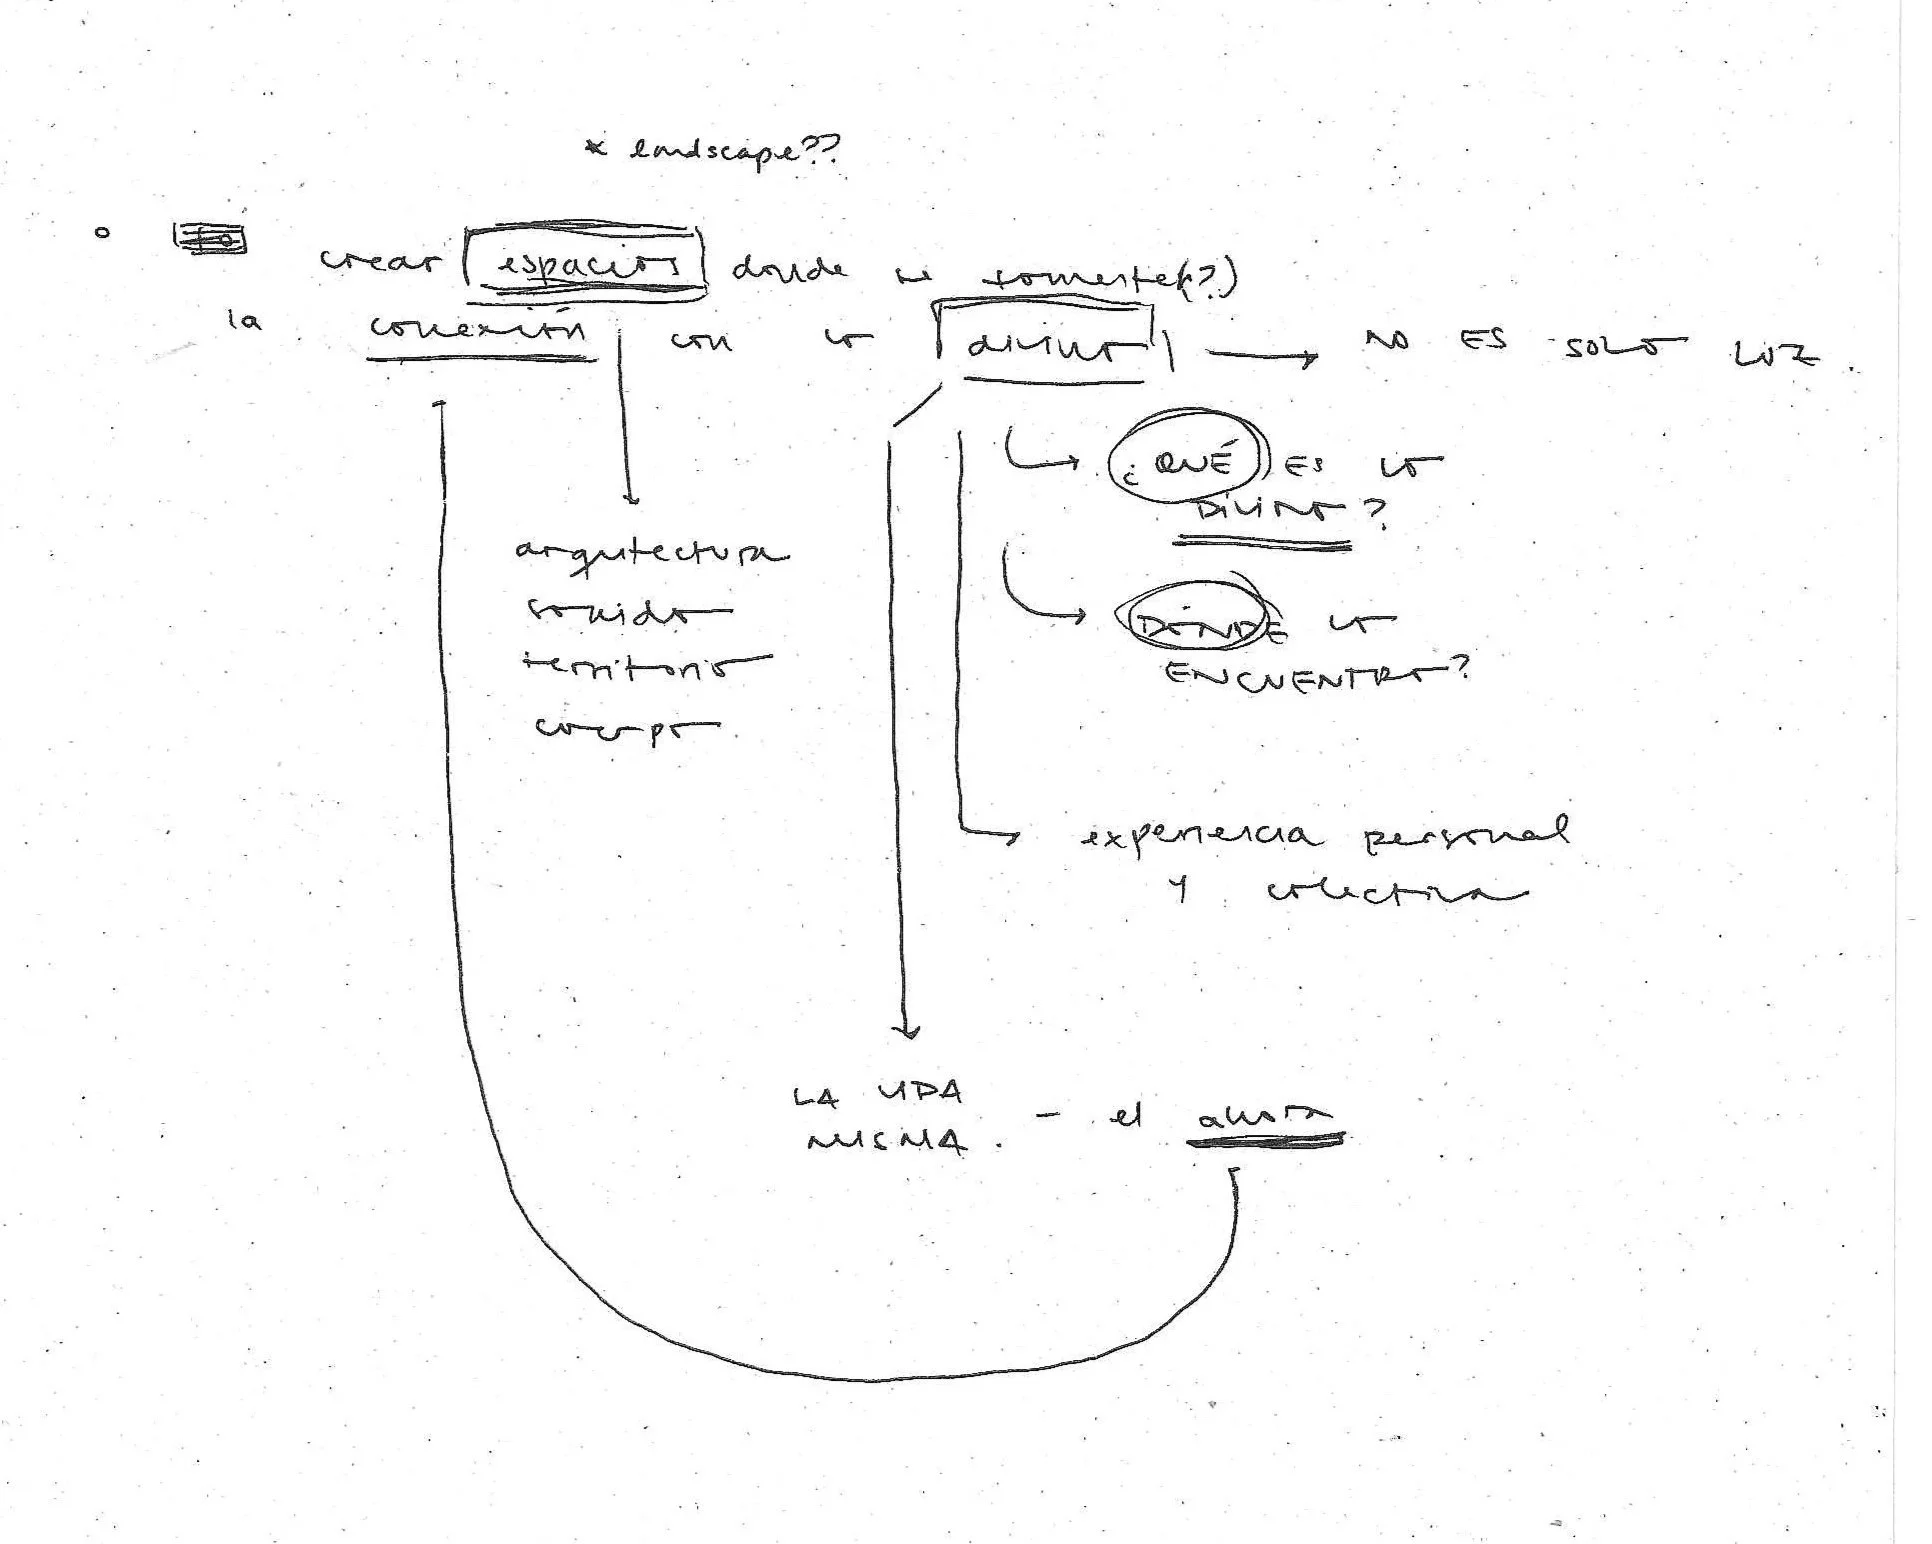 * landscape??
crear espacios donde se fomente(?)
la conexión con lo divino → NO ES SOLO LUZ.
¿QUÉ ES LO
DIVINO?
arquitectura
sonido
DÓNDE LO
territorio
ENCUENTRO?
cuerpo
experiencia personal
y colectiva
LA VIDA
MISMA. - el ahora